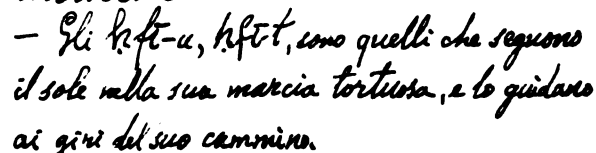 — Gli ḥfȝt-u, ḥfȝt-t, sono quelli che seguono
il sole nella sua marcia tortuosa, e lo guidano
ai giri del suo cammino.